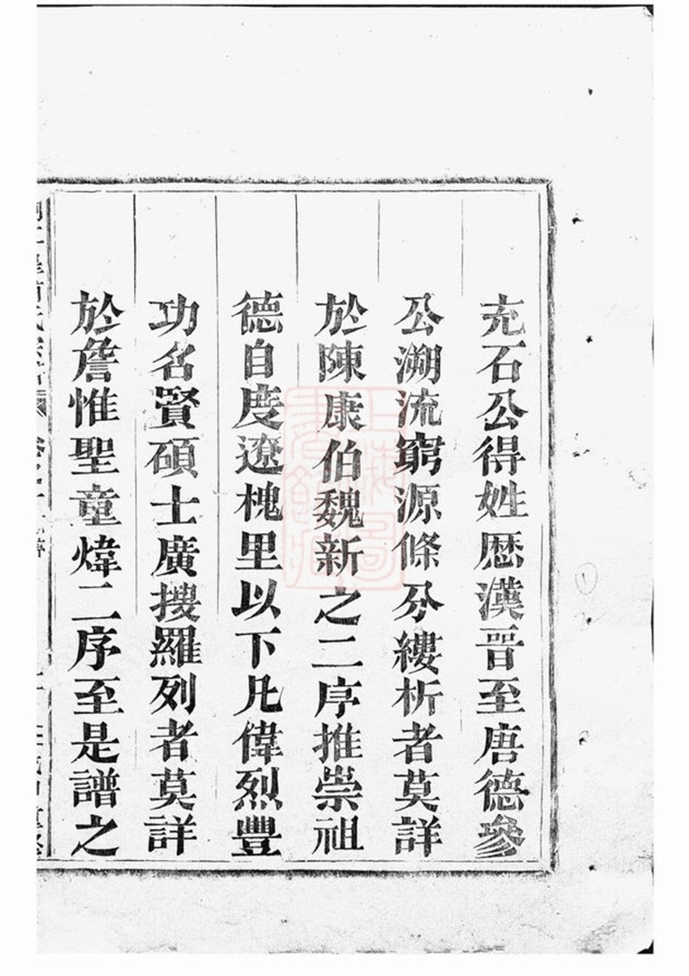 充石公得姓歷漢晉至唐德參
公溯流窮源條分縷析者莫詳
於陳康伯魏新之二序推崇祖
德自度遼槐里以下凡偉烈豐
功名賢碩士廣搜羅列者莫詳
於詹惟聖童煒二序至是譜之